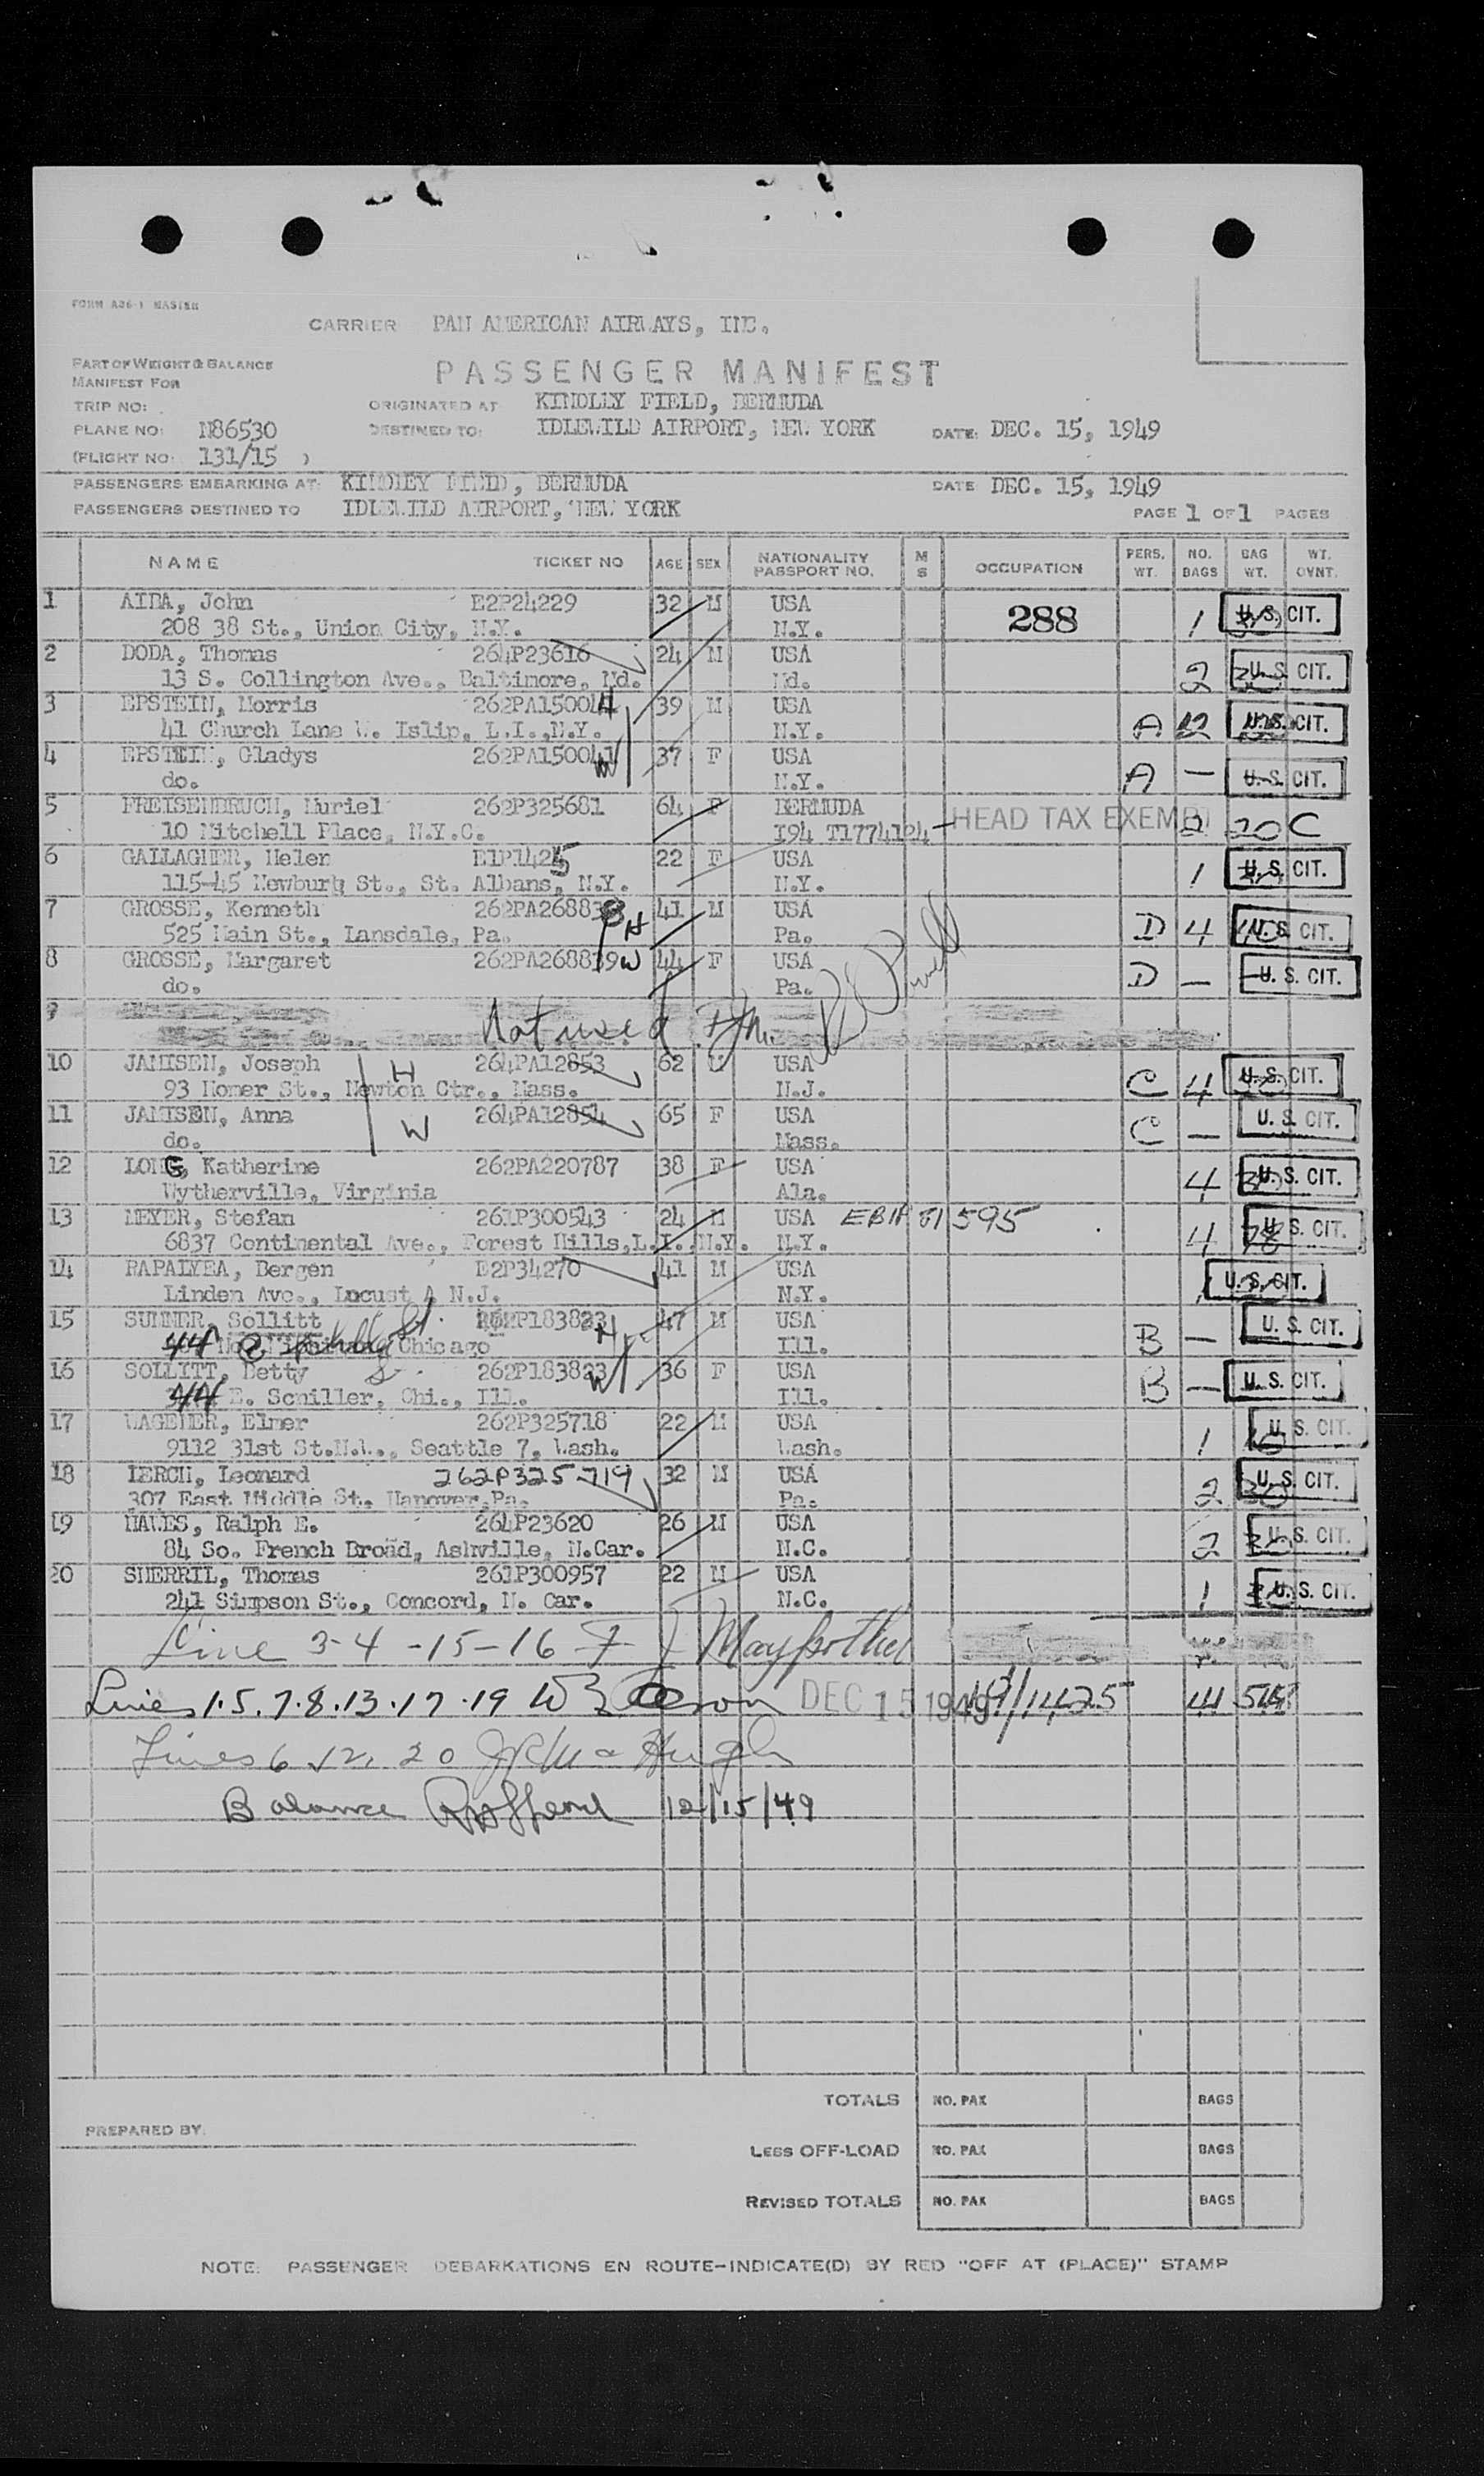 FORM A36-1 MASTER
CARRIER PAN AMERICAN AIRWAYS, INC.
PART OF WEIGHT & BALANCE
MANIFEST FOR
PASSENGER MANIFEST
TRIP NO:
ORIGINATED AT KINDLLY FIELD, BERMUDA
PLANE NO: N86530
DESTINED TO: IDLEWILD AIRPORT, NEW YORK DATE: DEC. 15, 1949
(FLIGHT NO: 131/15 )
PASSENGERS EMBARKING AT: KINDLEY FIELD, BERMUDA DATE DEC. 15, 1949
PASSENGERS DESTINED TO IDLEWILD AIRPORT, NEW YORK
PAGE 1 OF 1 PAGES
NAME TICKET NO AGE SEX NATIONALITY PASSPORT NO. M S OCCUPATION PERS. WT. NO. BAGS BAG WT. WT. OVNT.
1 AIDA, John E2P24229 32 M USA 288 1 U.S. CIT.
208 38 St., Union City, N.Y. N.Y.
2 DODA, Thomas 264P23616 24 M USA 2 U.S. CIT.
13 S. Collington Ave., Baltimore, Md. Md.
3 EPSTEIN, Morris 262PA15004 H 39 M USA A 2 U.S. CIT.
41 Church Lane W. Islip, L.I.,N.Y. N.Y.
4 EPSTEIN, Gladys 262PA150041 W 37 F USA A — U.S. CIT.
do. N.Y.
5 FREISENDRUCH, Muriel 262P325681 64 F BERMUDA HEAD TAX EXEMPT 2 20 C
10 Mitchell Place, N.Y.C. I94 T1774124
6 GALLAGHER, Helen E1P1425 22 F USA 1 U.S. CIT.
115-45 Newburg St., St. Albans, N.Y. N.Y.
7 GROSSE, Kenneth 262PA26883 H 41 M USA D 4 40 U.S. CIT.
525 Main St., Lansdale, Pa. Pa.
8 GROSSE, Margaret 262PA268839 W 44 F USA D — U.S. CIT.
do. Pa.
9 Not used
10 JAMISEN, Joseph H 264PA12853 62 M USA C 4 U.S. CIT.
93 Homer St., Newton Ctr., Mass. N.J.
11 JAMISEN, Anna W 264PA12854 65 F USA C — U.S. CIT.
do. Mass.
12 LONG, Katherine 262PA220787 38 F USA 4 30 U.S. CIT.
Wytherville, Virginia Ala.
13 MEYER, Stefan 261P300543 24 M USA 4 78 U.S. CIT.
6837 Continental Ave., Forest Hills,L.I.,N.Y. N.Y.
14 PAPALYEA, Bergen E2P34270 41 M USA U.S. CIT.
Linden Ave., Locust N.J. N.Y.
15 SUMNER, Sollitt 262P183823 H 47 M USA B — U.S. CIT.
44 Chicago Ill.
16 SOLLITT, Betty 262P183823 W 36 F USA B — U.S. CIT.
44 E. Scniller, Chi., Ill. Ill.
17 WAGENER, Elmer 262P325718 22 M USA 1 U.S. CIT.
9112 31st St.N.W., Seattle 7, Wash. Wash.
18 LERCH, Leonard 262P325719 32 M USA 2 30 U.S. CIT.
307 East Middle St. Hanover,Pa. Pa.
19 HAWES, Ralph E. 264P23620 26 M USA 2 U.S. CIT.
84 So. French Broad, Ashville, N.Car. N.C.
20 SHERRIL, Thomas 261P300957 22 M USA 1 U.S. CIT.
241 Simpson St., Concord, N. Car. N.C.
Line 3-4-15-16
Lines 1.5.7.8.13.17.19 DEC 15 1949 19/1425
Lines 6, 12, 20
Balance 12/15/49
TOTALS NO. PAX BAGS
PREPARED BY:
LESS OFF-LOAD NO. PAX BAGS
REVISED TOTALS NO. PAX BAGS
NOTE: PASSENGER DEBARKATIONS EN ROUTE-INDICATE(D) BY RED "OFF AT (PLACE)" STAMP